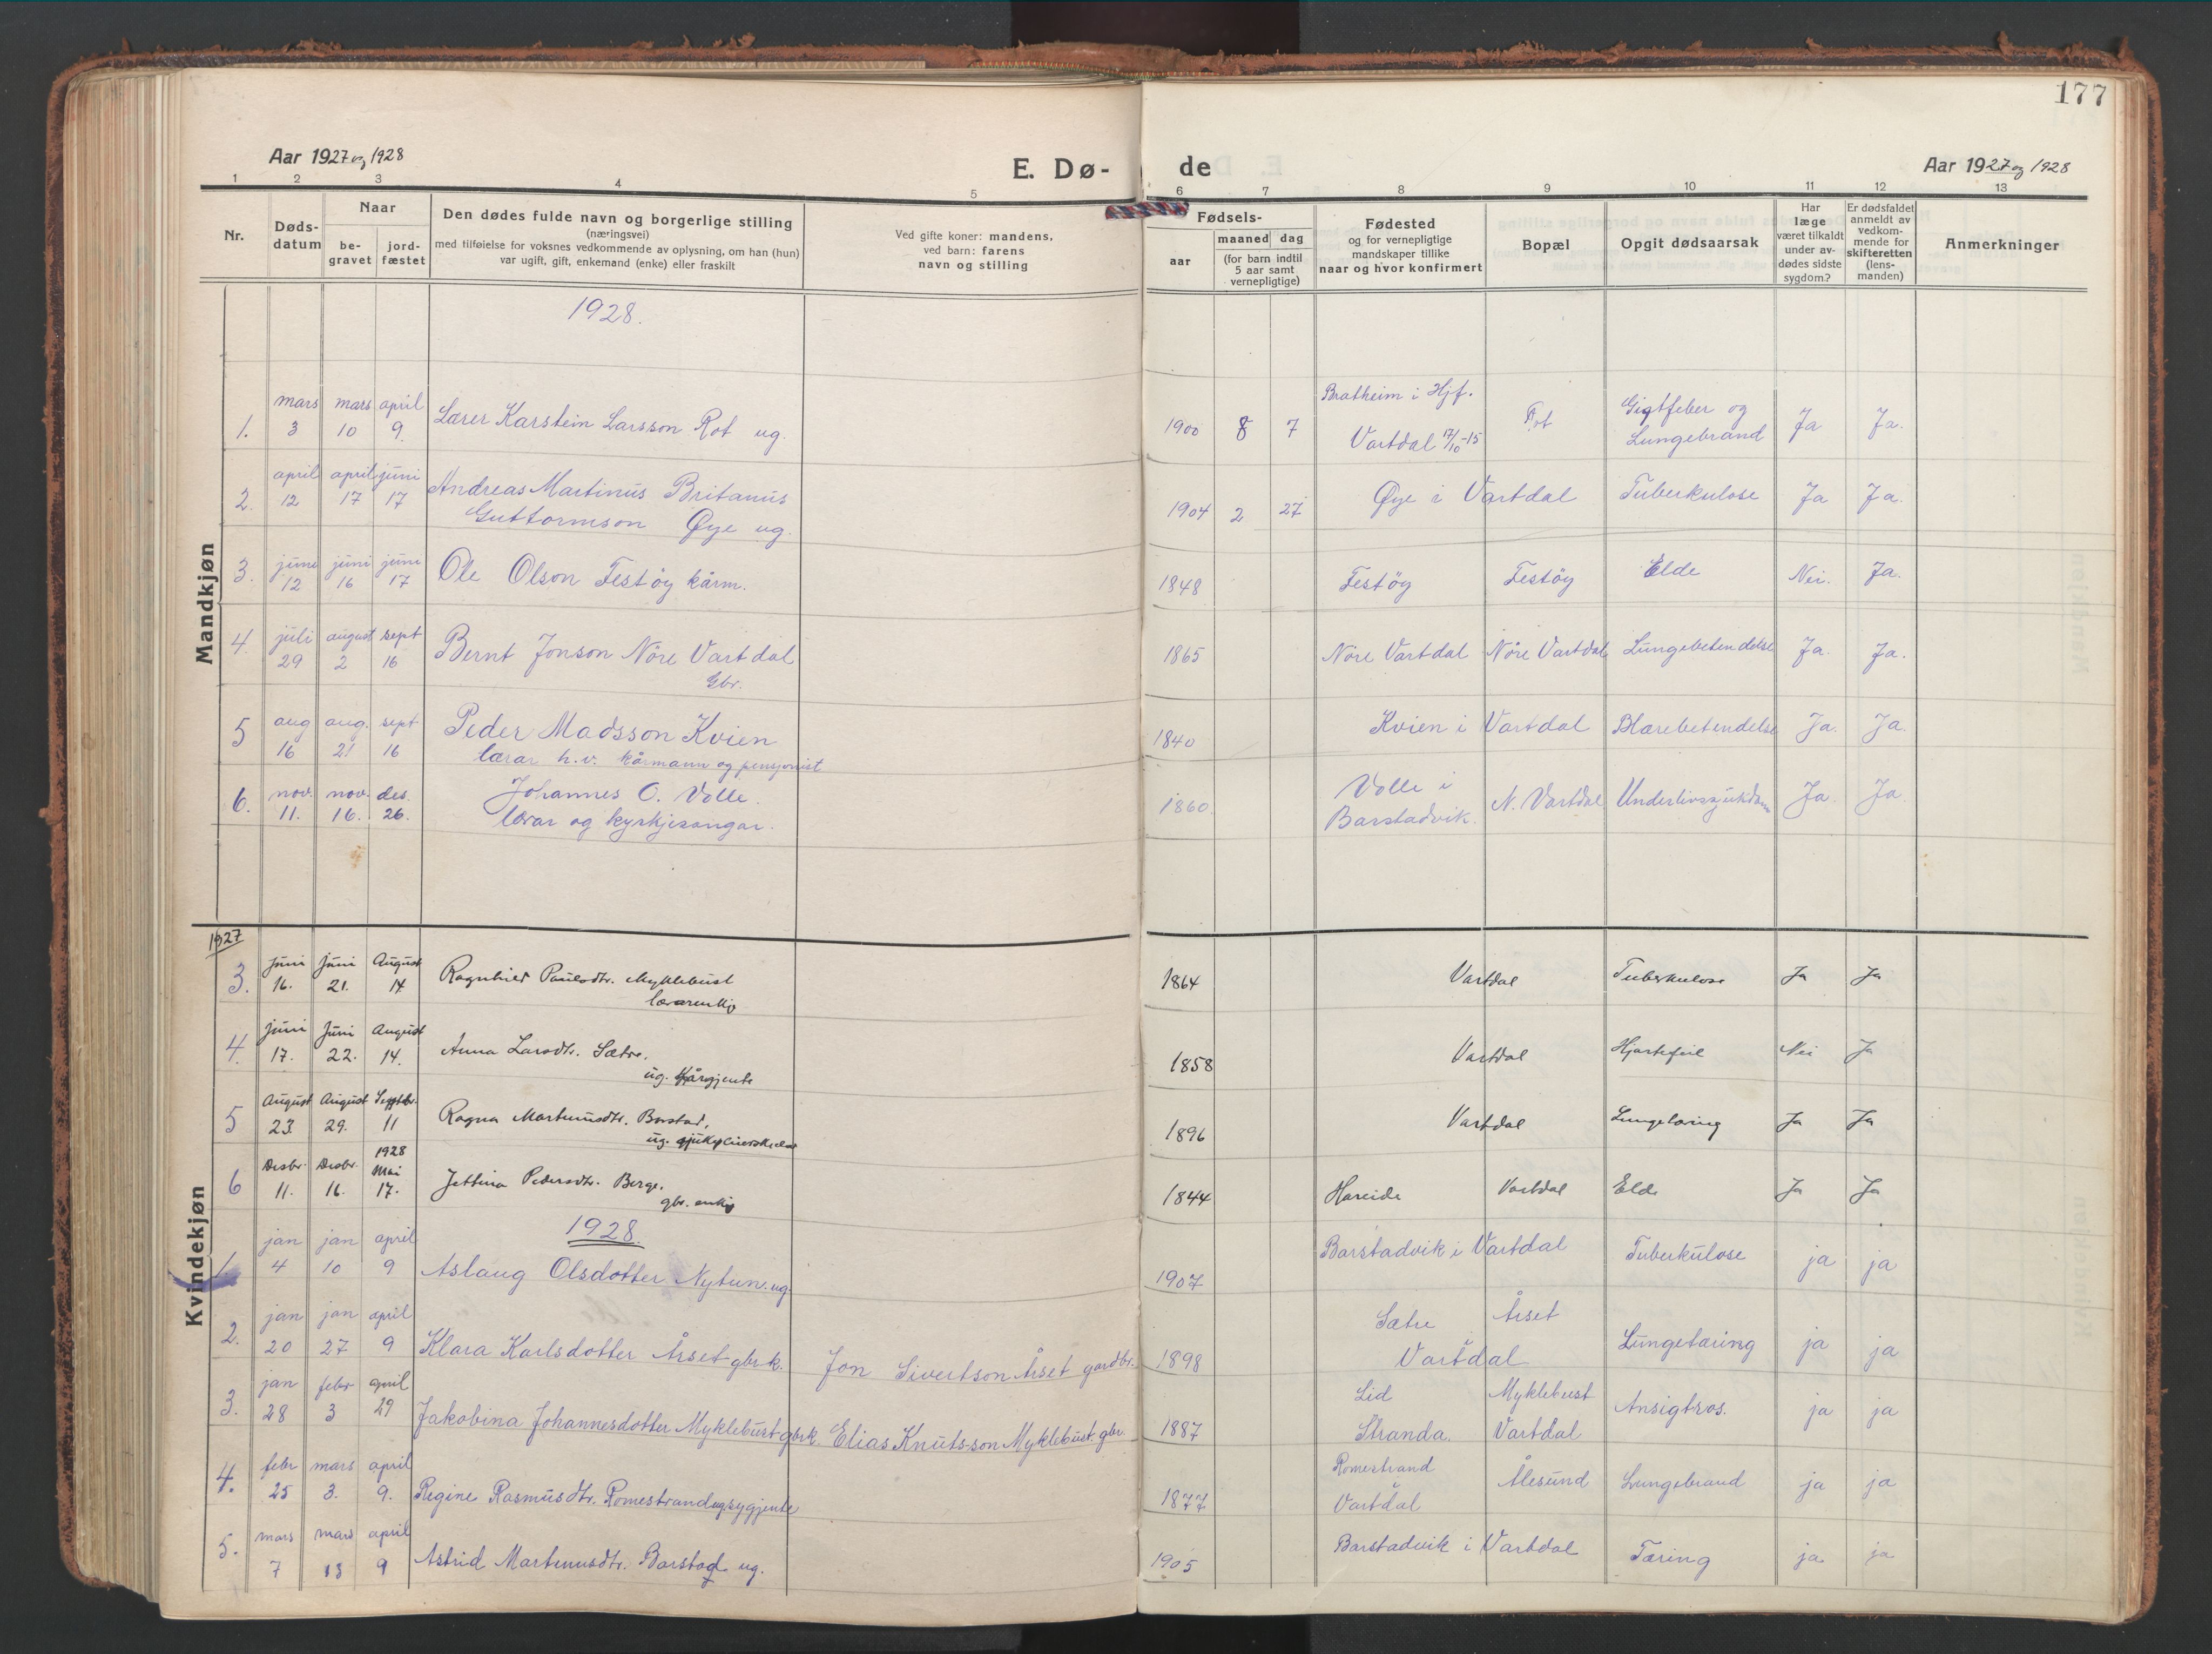 177
Aar 1927 og 1928
E. Dø-
de
Aar 1927 og 1928
1 2 3 4 5 6 7 8 9 10 11 12 13
Nr.
Døds-
datum
Naar
be-
gravet
jord-
fæstet
Den dødes fulde navn og borgerlige stilling
(næringsvei)
med tilføielse for voksnes vedkommende av oplysning, om han (hun)
var ugift, gift, enkemand (enke) eller fraskilt
Ved gifte koner: mandens,
ved barn: farens
navn og stilling
Fødsels-
aar
maaned dag
(for barn indtil
5 aar samt
vernepligtige)
Fødested
og for vernepligtige
mandskaper tillike
naar og hvor konfirmert
Bopæl
Opgit dødsaarsak
Har
læge
været tilkaldt
under av-
dødes sidste
sygdom?
Er dødsfaldet
anmeldt av
vedkom-
mende for
skifteretten
(lens-
manden)
Anmerkninger
Mandkjøn
1928.
mars mars april Bratheim i Hjf. Gigtfeber og
1. 3 10 9. Lærer Karstein Larsson Rot ug. 1900 8 7 Vartdal 17/10-15 Rot Lungebrand Ja Ja.
april april juni Andreas Martinus Britanus
2. 12 17 17 Guttormson Øye ug. 1904 2 27 Øye i Vartdal Tuberkulose Ja Ja.
juni juni juni
3. 12 16 17 Ole Olson Festöy kårm. 1848 Festöy Festöy Elde Nei. Ja.
juli august sept
4. 29 2 16 Bernt Jonson Nöre Vartdal 1865 Nöre Vartdal Nöre Vartdal Lungebetendelse Ja. Ja.
Gbr.
aug aug. sept Peder Madsson Kvien
5 16 21 16 lærar h.v. kårmann og pensjonist 1840 Kvien i Vartdal Blærebetendelse Ja. Ja.
nov. nov. des. Johannes O. Volle. Volle i
6. 11. 16. 26. lærar og kyrkjesongar. 1860. Barstadvik. N. Vartdal Underlivssjukdom Ja. Ja.
Kvindekjøn
1927
Juni Juni August
3. 16. 21. 14 Ragnhild Paulsdtr. Myklebust 1864 Vartdal Tuberkulose Ja Ja
lærarenkje
Juni Juni August
4. 17. 22. 14. Anna Larsdtr. Sætre. 1858 Vartdal Hjartefeil Nei Ja
ug. kårgjente
August August Septbr.
5 23. 29. 11 Ragna Martinusdtr. Barstad, 1896 Vartdal Lungetæring Ja Ja
ug.
1928
Desbr. Desbr. Mai
6 11. 16. 17. Jettina Pedersdtr. Berge. 1844 Hareide Vartdal Elde Ja Ja
gbr. enkje
1928.
jan jan april
1. 4 10 9 Aslaug Olsdotter Nytun. ug. 1907 Barstadvik i Vartdal Tuberkulose ja ja
jan jan april Sætre Årset
2. 20 27 9 Klara Karlsdotter Årset gbrk. Jon Sivertson Årset gardbr. 1898 Vartdal Lungetæring ja ja
jan febr april Lid Myklebust
3. 28 3 29 Jakobina Johannesdotter Myklebust gbrk. Elias Knutsson Myklebust gbr. 1887 Stranda. Vartdal Ansigtsros. ja ja
febr mars april Romestrand
4. 25 3. 9. Regine Rasmusdtr. Romestrand ug. sygjente 1877 Vartdal Ålesund Lungebrand ja ja
mars mars april
5. 7 13 9 Astrid Martinusdtr. Barstad ug. 1905 Barstadvik i Vartdal Tæring ja ja